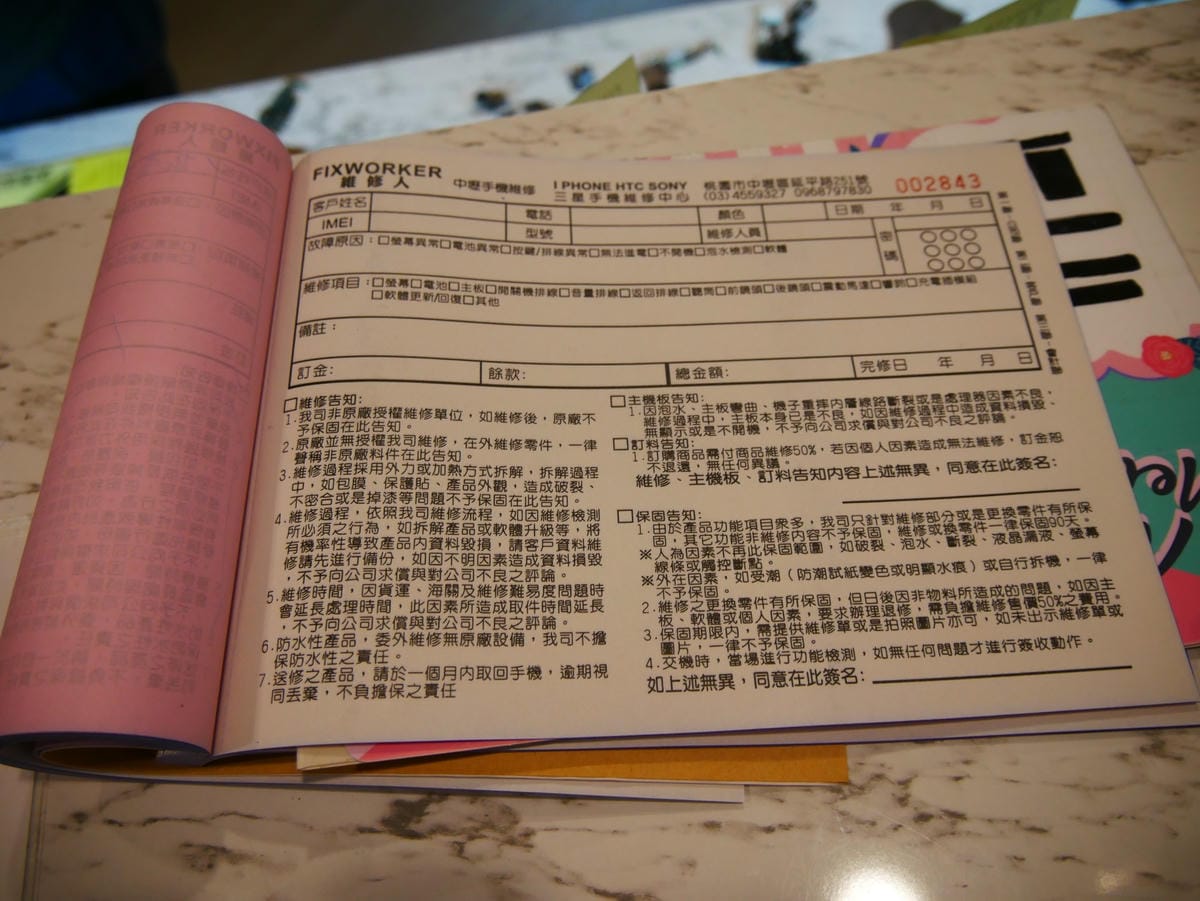 FIXWORKER
維修人
中壢手機維修
I PHONE HTC SONY
三星手機維修中心
桃園市中壢區延平路251號
(03)4559327 0968797830
002843
客戶姓名 電話 顏色 日期 年 月 日
IMEI 型號 維修人員 密碼
故障原因：□螢幕異常□電池異常□按鍵/排線異常□無法進電□不開機□泡水檢測□軟體
維修項目：□螢幕□電池□主板□開關機排線□音量排線□返回排線□聽筒□前鏡頭□後鏡頭□震動馬達□響鈴□充電插模組
□軟體更新/回復□其他
備註：
訂金: 餘款: 總金額: 完修日 年 月 日
□維修告知:
1.我司非原廠授權維修單位，如維修後，原廠不
予保固在此告知。
2.原廠並無授權我司維修，在外維修零件，一律
聲稱非原廠料件在此告知。
3.維修過程採用外力或加熱方式拆解，拆解過程
中，如包膜、保護貼、產品外觀，造成破裂、
不密合或是掉漆等問題不予保固在此告知。
4.維修過程，依照我司維修流程，如因維修檢測
所必須之行為，如拆解產品或軟體升級等，將
有機率性導致產品內資料毀損，請客戶資料維
修請先進行備份，如因不明因素造成資料損毀
，不予向公司求償與對公司不良之評論。
5.維修時間，因貨運、海關及維修難易度問題時
會延長處理時間，此因素所造成取件時間延長
，不予向公司求償與對公司不良之評論。
6.防水性產品，委外維修無原廠設備，我司不擔
保防水性之責任。
7.送修之產品，請於一個月內取回手機，逾期視
同丟棄，不負擔保之責任
□主機板告知:
1.因泡水、主板彎曲、機子重摔內層線路斷裂或是處理器因素不良，
維修過程中，主板本身已是不良，如因維修過程中造成資料損毀、
無顯示或是不開機，不予向公司求償與對公司不良之評論。
□訂料告知:
1.訂購商品需付商品維修50%，若因個人因素造成無法維修，訂金恕
不退還，無任何異議。
維修、主機板、訂料告知內容上述無異，同意在此簽名:
□保固告知:
1.由於產品功能項目衆多，我司只針對維修部分或是更換零件有所保
固，其它功能非維修內容不予保固，維修或換零件一律保固90天。
※人為因素不再此保固範圍，如破裂、泡水、斷裂、液晶漏液、螢幕
線條或觸控斷點。
※外在因素，如受潮（防潮試紙變色或明顯水痕）或自行拆機，一律
不予保固。
2.維修之更換零件有所保固，但日後因非物料所造成的問題，如因主
板、軟體或個人因素，要求辦理退修，需負擔維修售價50%之費用。
3.保固期限內，需提供維修單或是拍照圖片亦可，如未出示維修單或
圖片，一律不予保固。
4.交機時，當場進行功能檢測，如無任何問題才進行簽收動作。
如上述無異，同意在此簽名: